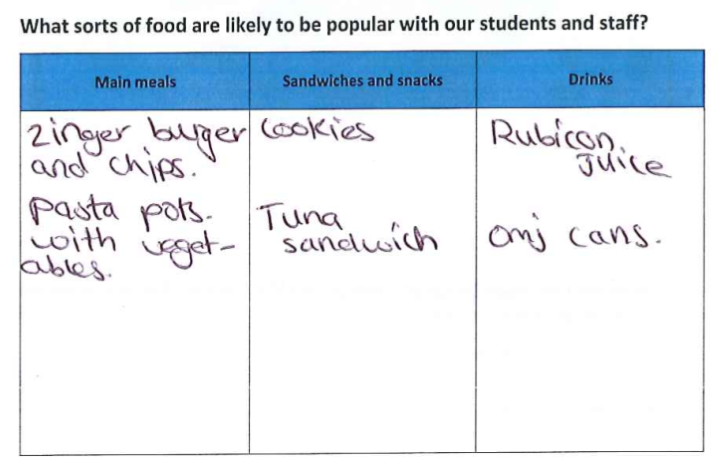 What sorts of food are likely to be popular with our students and staff?
Main meals
Sandwiches and snacks
Drinks
Zinger burger
and chips.
Cookies
Rubicon
Juice
Pasta pots.
with veget-
ables.
Tuna
sandwich
omj cans.